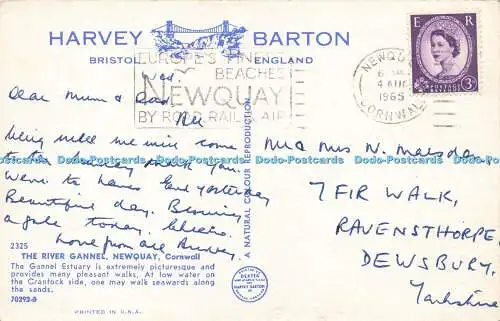 HARVEY BARTON
BRISTOL ENGLAND
EUROPE'S FINEST
BEACHES
NEWQUAY
BY ROAD, RAIL & AIR
NEWQUAY
4 AUG
1965
CORNWALL
E R
POSTAGE REVENUE
3D
Wed.
Dear Mum & Dad
All
being well we will come
to
Went to
yesterday
Beautiful day. Blowing
a gale today. Cheerio.
Love from all
Mr & Mrs N. Marsden
7 FIR WALK,
RAVENSTHORPE,
DEWSBURY,
Yorkshire
A NATURAL COLOUR REPRODUCTION
2325
THE RIVER GANNEL, NEWQUAY, Cornwall
The Gannel Estuary is extremely picturesque and
provides many pleasant walks. At low water on
the Crantock side, one may walk seawards along
the sands.
70292-B
PRINTED IN U.S.A.
DEXTER
HARVEY BARTON
Dodo-Postcards Dodo-Postcards Dodo-Postcards Dodo-Postcards Dodo-Postcards